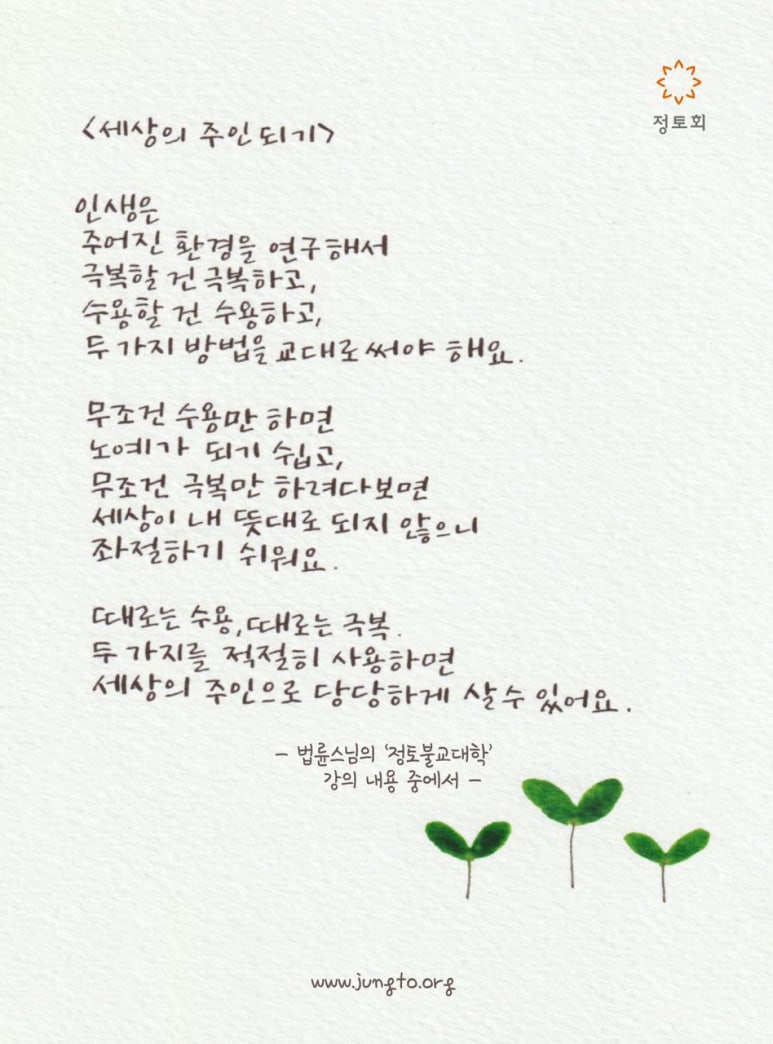 정토회
<세상의 주인 되기>
인생은
주어진 환경을 연구해서
극복할 건 극복하고,
수용할 건 수용하고,
두 가지 방법을 교대로 써야 해요.
무조건 수용만 하면
노예가 되기 쉽고,
무조건 극복만 하려다보면
세상이 내 뜻대로 되지 않으니
좌절하기 쉬워요.
때로는 수용, 때로는 극복.
두 가지를 적절히 사용하면
세상의 주인으로 당당하게 살 수 있어요.
- 법륜스님의 '정토불교대학'
강의 내용 중에서 -
www.jungto.org